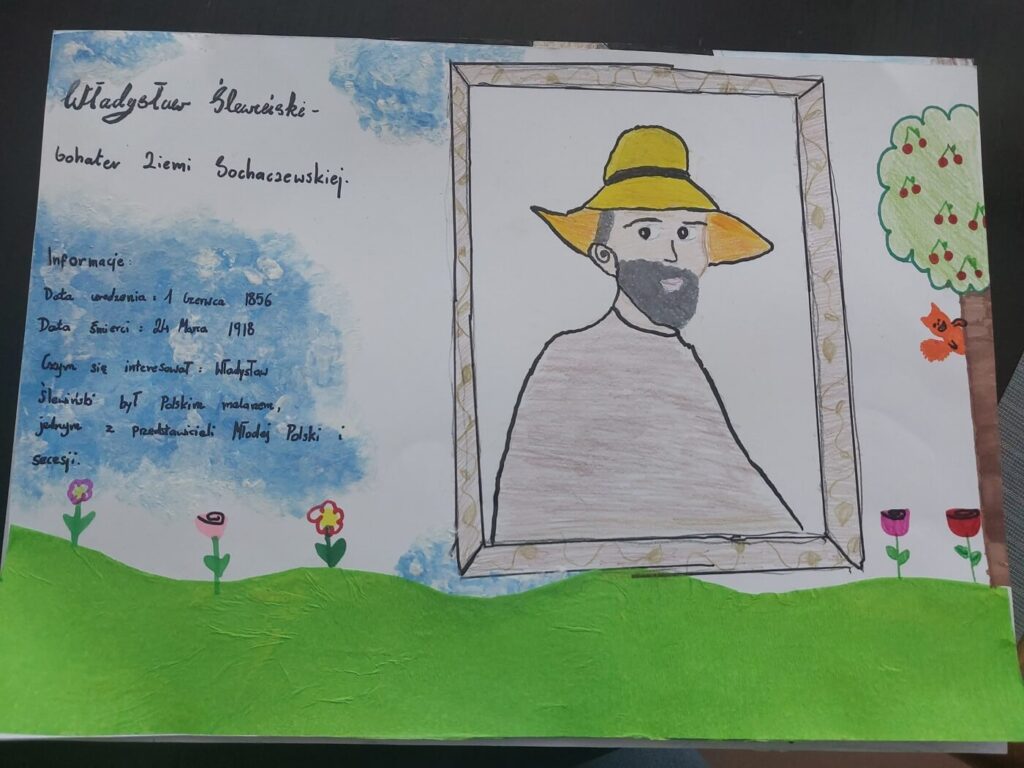 Władysław Ślewiński -
bohater Ziemi Sochaczewskiej.
Informacje:
Data urodzenia: 1 Czerwca 1856
Data śmierci: 24 Marca 1918
Czym się interesował: Władysław
Ślewiński był Polskim malarzem,
jednym z przedstawicieli Młodej Polski i
secesji.